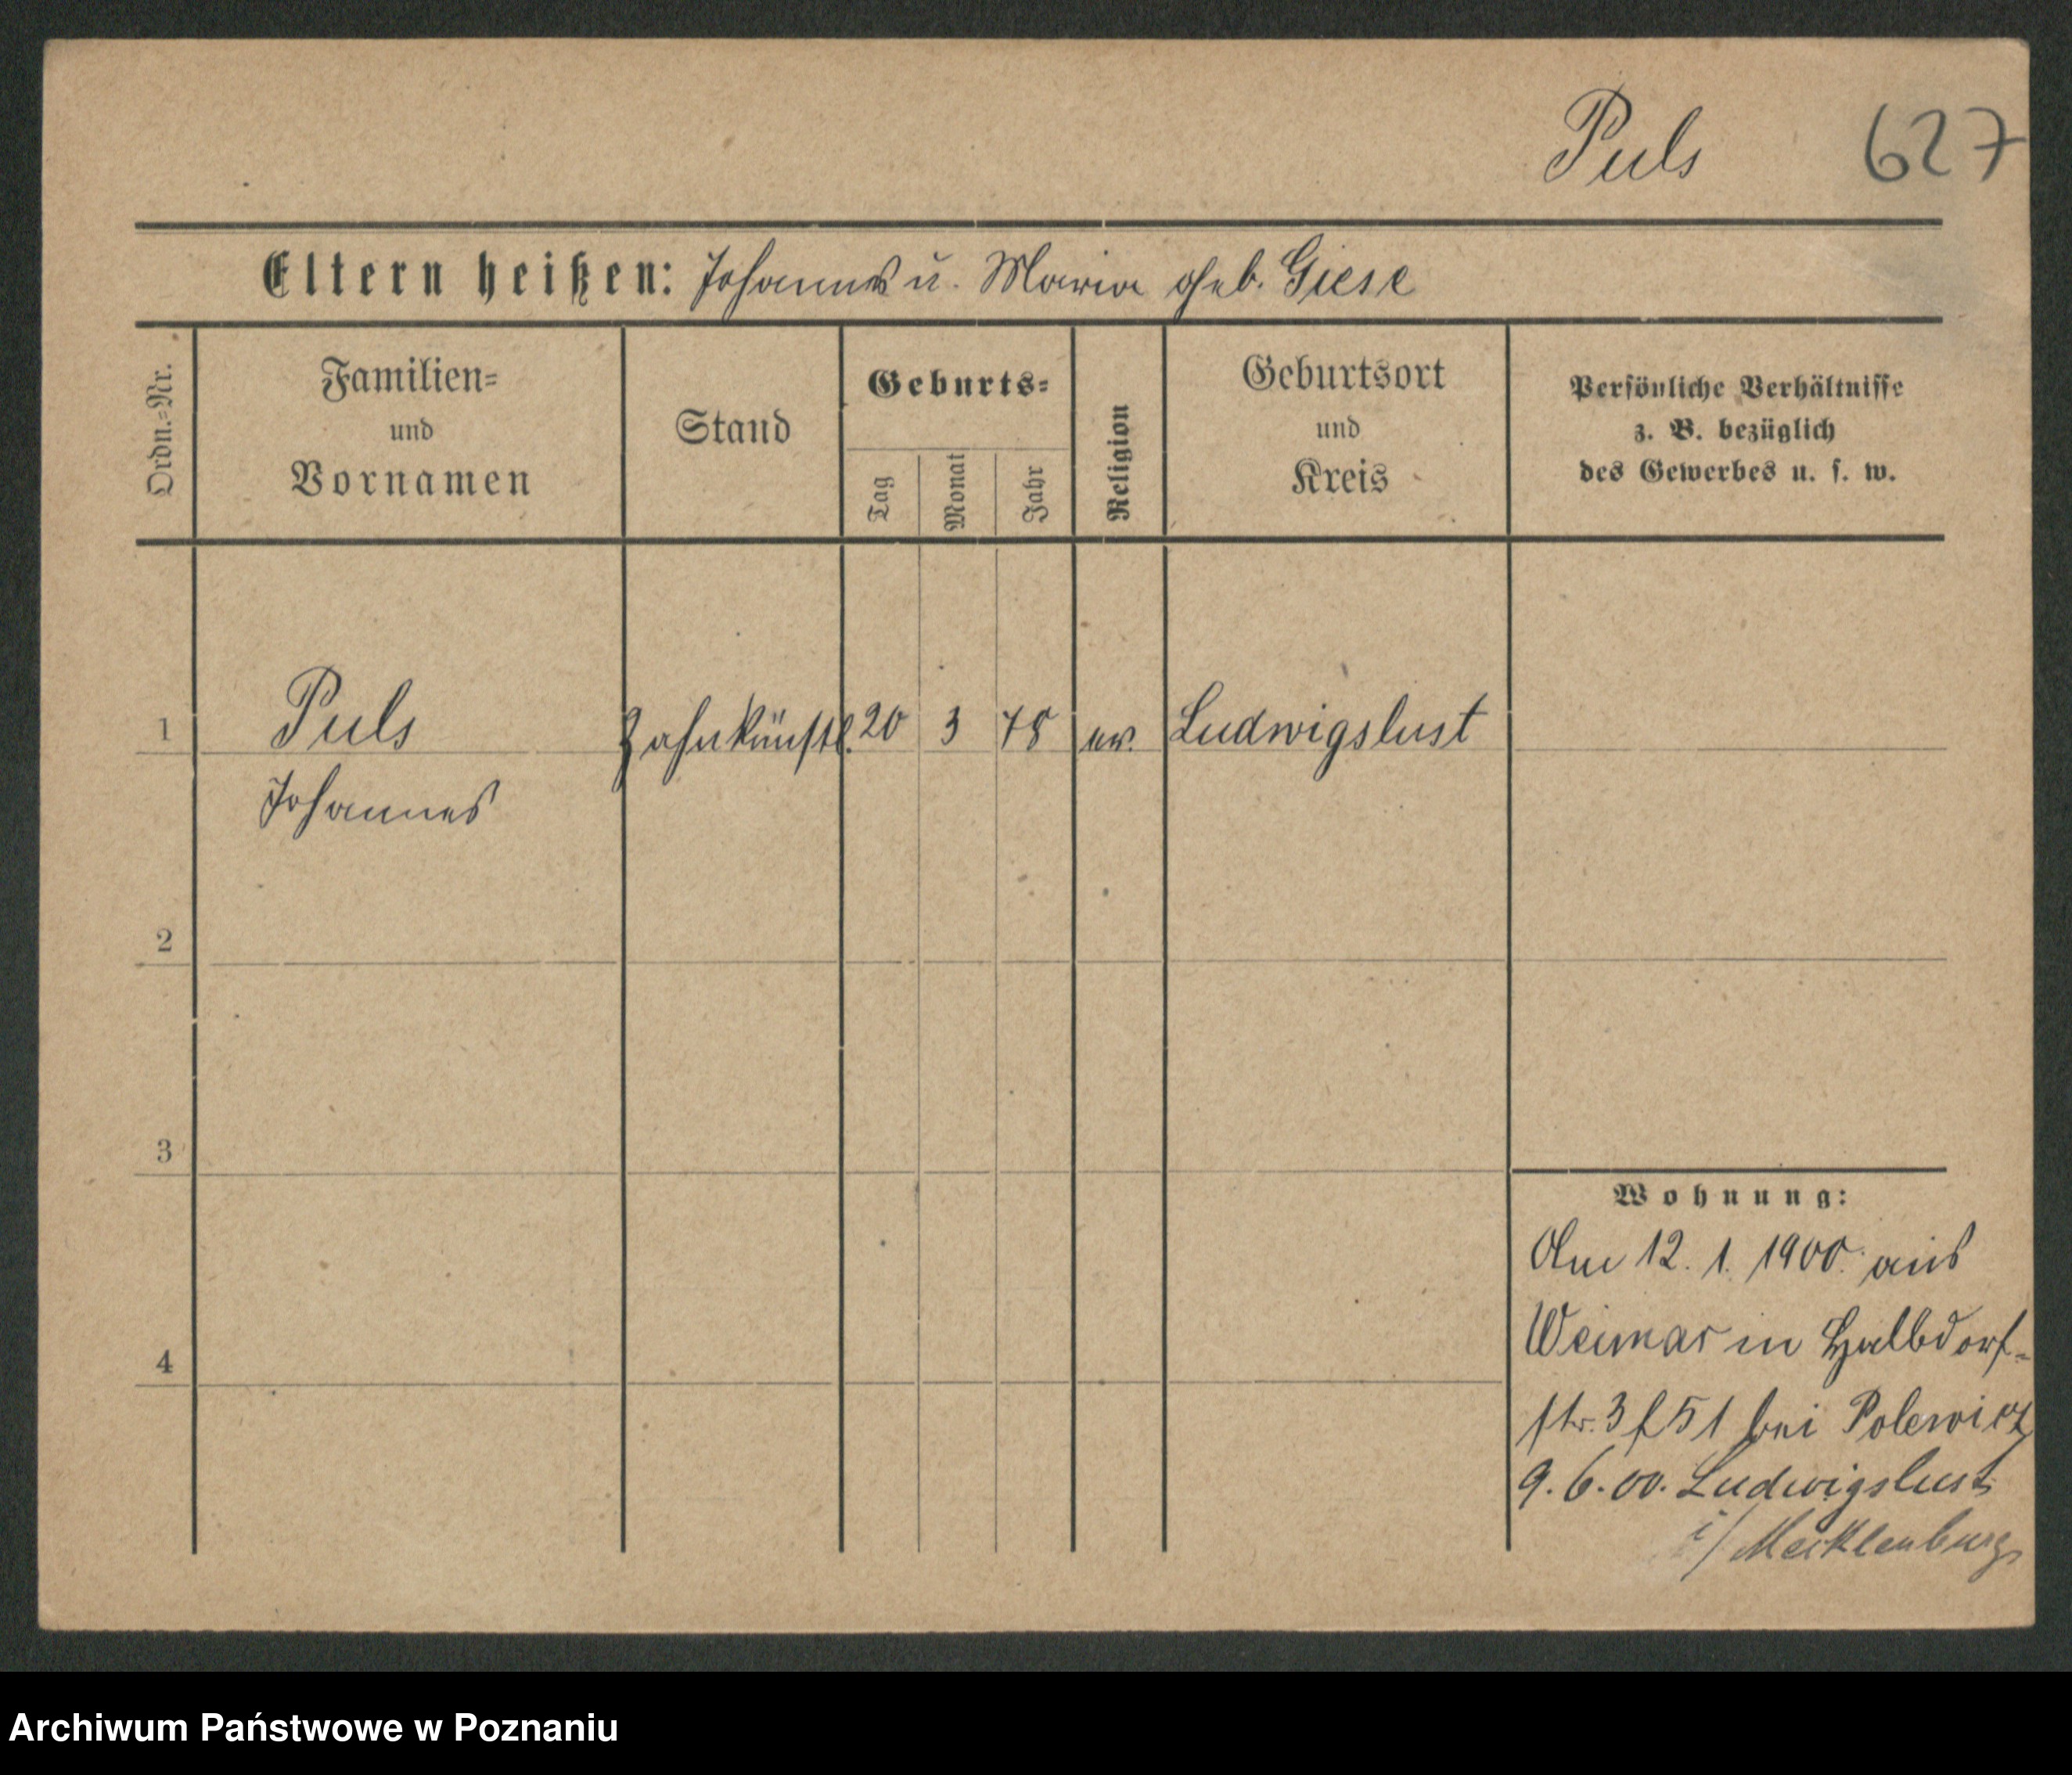 Puls 627
Eltern heißen: Johannes u. Maria geb. Giese
Ordn.=Nr.
Familien=
und
Vornamen
Stand
Geburts=
Tag
Monat
Jahr
Religion
Geburtsort
und
Kreis
Persönliche Verhältnisse
z. B. bezüglich
des Gewerbes u. s. w.
1 Puls Zahnkünstl. 20 3 78 ev. Ludwigslust
Johannes
2
3
4
Wohnung:
Am 12. 1. 1900. aus
Weimar in Halbdorf-
str. 3 bei Polewicz
9. 6. 00. Ludwigslust
i/ Mecklenburg
Archiwum Państwowe w Poznaniu